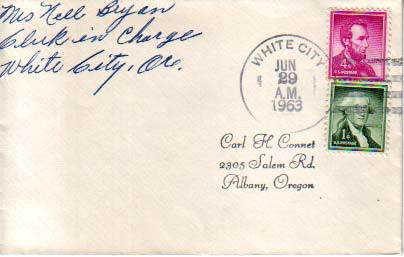 Mrs Nell Bryan
Clerk in Charge
White City, Ore.
WHITE CITY
JUN
29
A.M.
1963
4¢
U.S. POSTAGE
1¢
U.S. POSTAGE
Carl H. Connet
2305 Salem Rd.
Albany, Oregon